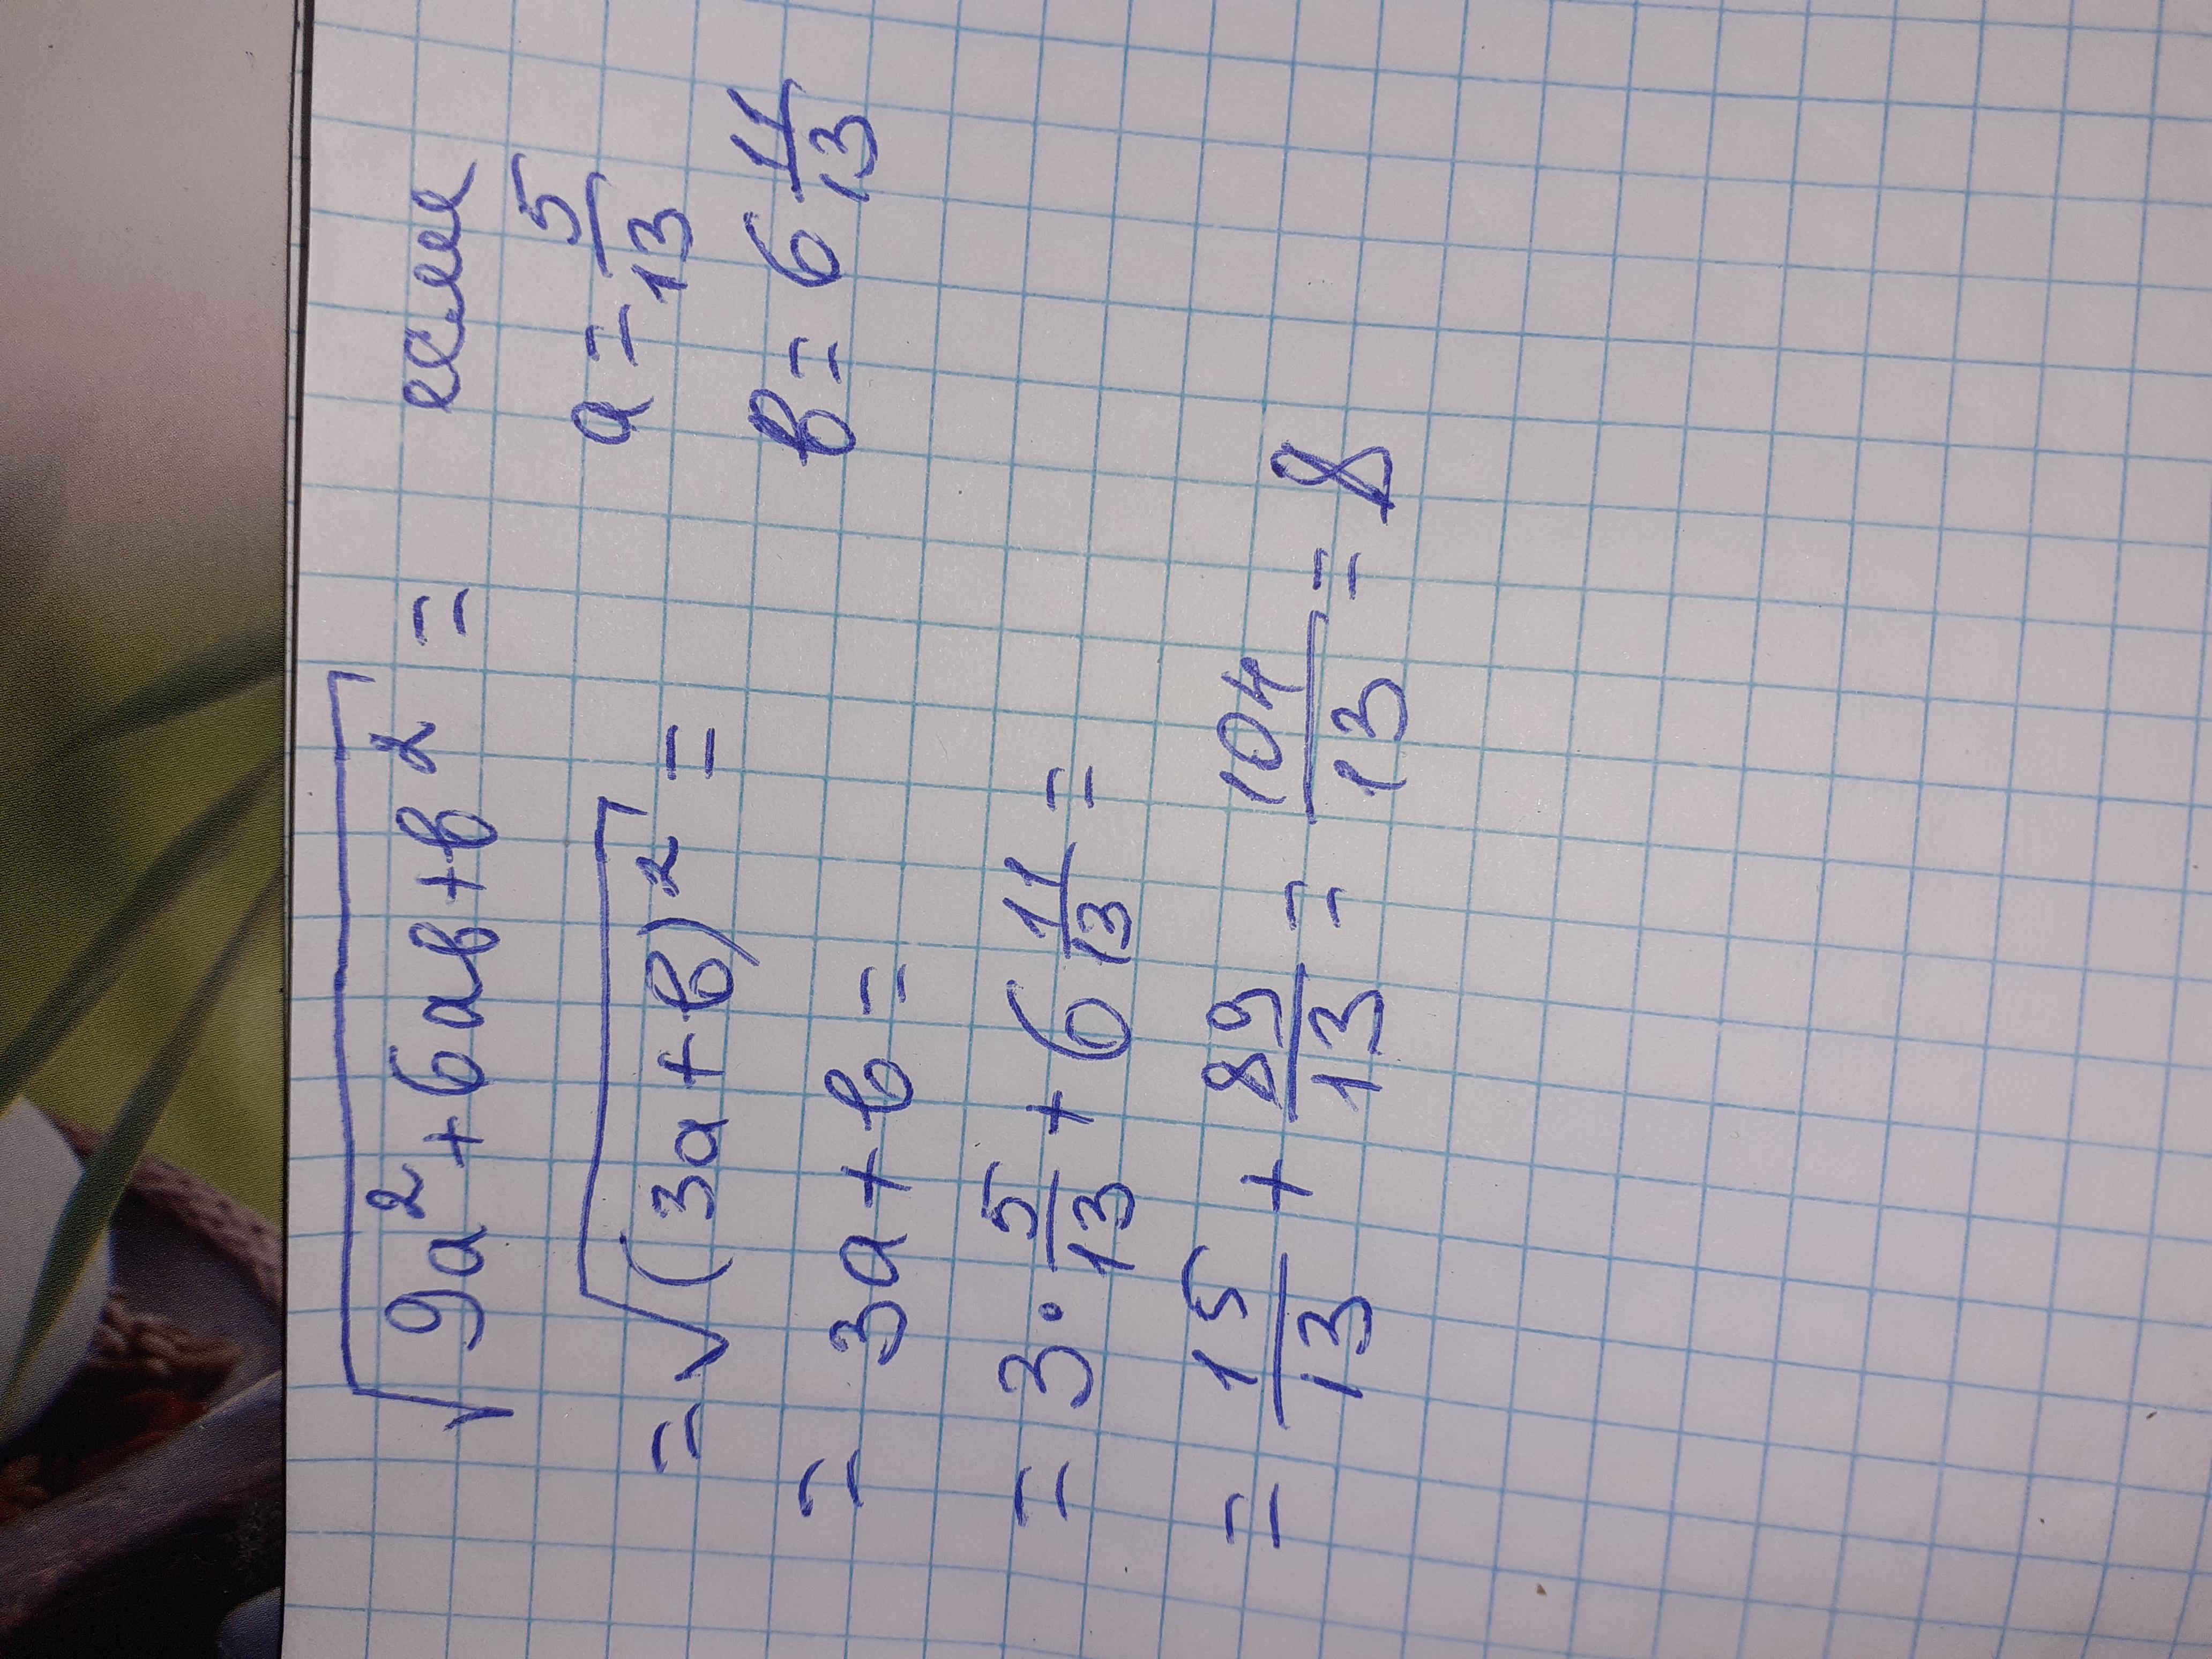 √(9a²+6aв+в²) = если
a = 5/13
= √((3a+в)²) =
в = 6 11/13
= 3a+в =
= 3·5/13 + 6 11/13 =
= 15/13 + 89/13 = 104/13 = 8